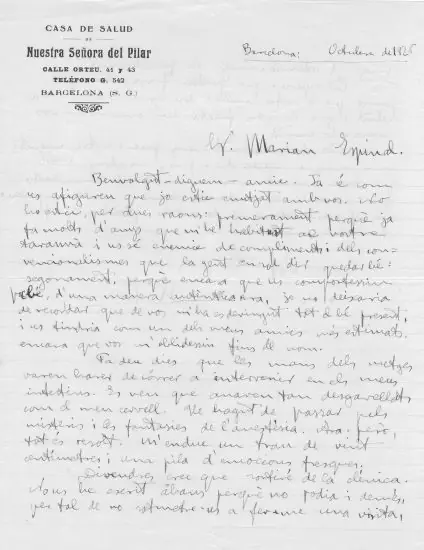 CASA DE SALUD
DE
Nuestra Señora del Pilar
CALLE ORTEU, 41 y 43
TELÉFONO G. 542
BARCELONA (S. G.)
Barcelona: Octubre de 192
Sr. Marian Espinal.
Benvolgut – diguem – amic. Ja é com
us afigureu que jo estic enutjat amb vos. No
ho estic, per dues raons: primerament perquè ja
fa molts d'anys que m'he habituat al vostre
tarannà i us se enemic de compliments i dels con-
vencionalismes que la gent en vol dir quedar bé;
segonament; perquè encara que us comportessiu
d'una manera autèntica, jo no deixaria
de recordar que de vos m'ha esdevingut tot el bé present;
i us tindria com un dels meus amics més estimats,
encara que vos m'oblidessiu fins de nom.
Fa deu dies que les mans dels metges
varen haver de córrer a intervenir en els meus
intestins. Es veu que anaven tan desgavellats
com el meu cervell. He hagut de passar pels
misteris i les fantasies de l'anestèsia. Ara, però,
tot és resolt. M'enduc un tran de vint
centímetres i una pila d'emocions fresques.
Divendres crec que sortiré de la clínica.
No us he escrit abans perquè no podia i demés,
per tal de no sotmetre-us a fer-me una visita,